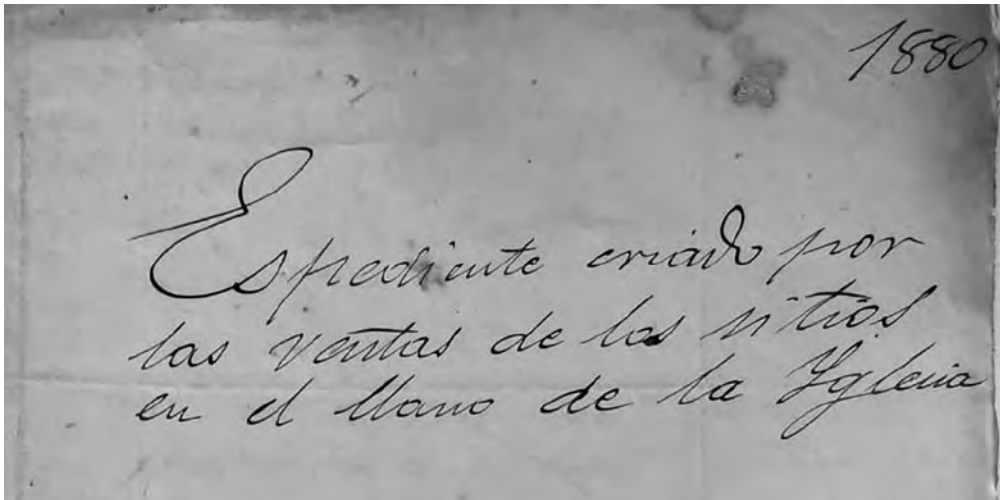 1880
Espediente criado por
las ventas de los sitios
en el llano de la Yglesia